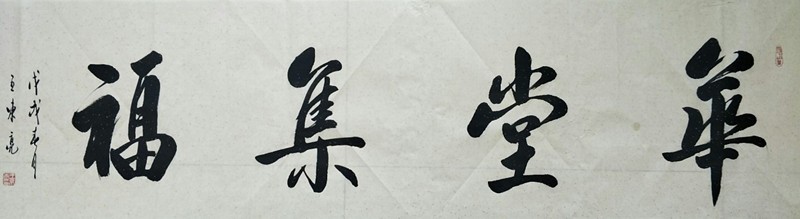 華堂集福
戊戌春月
王東亮